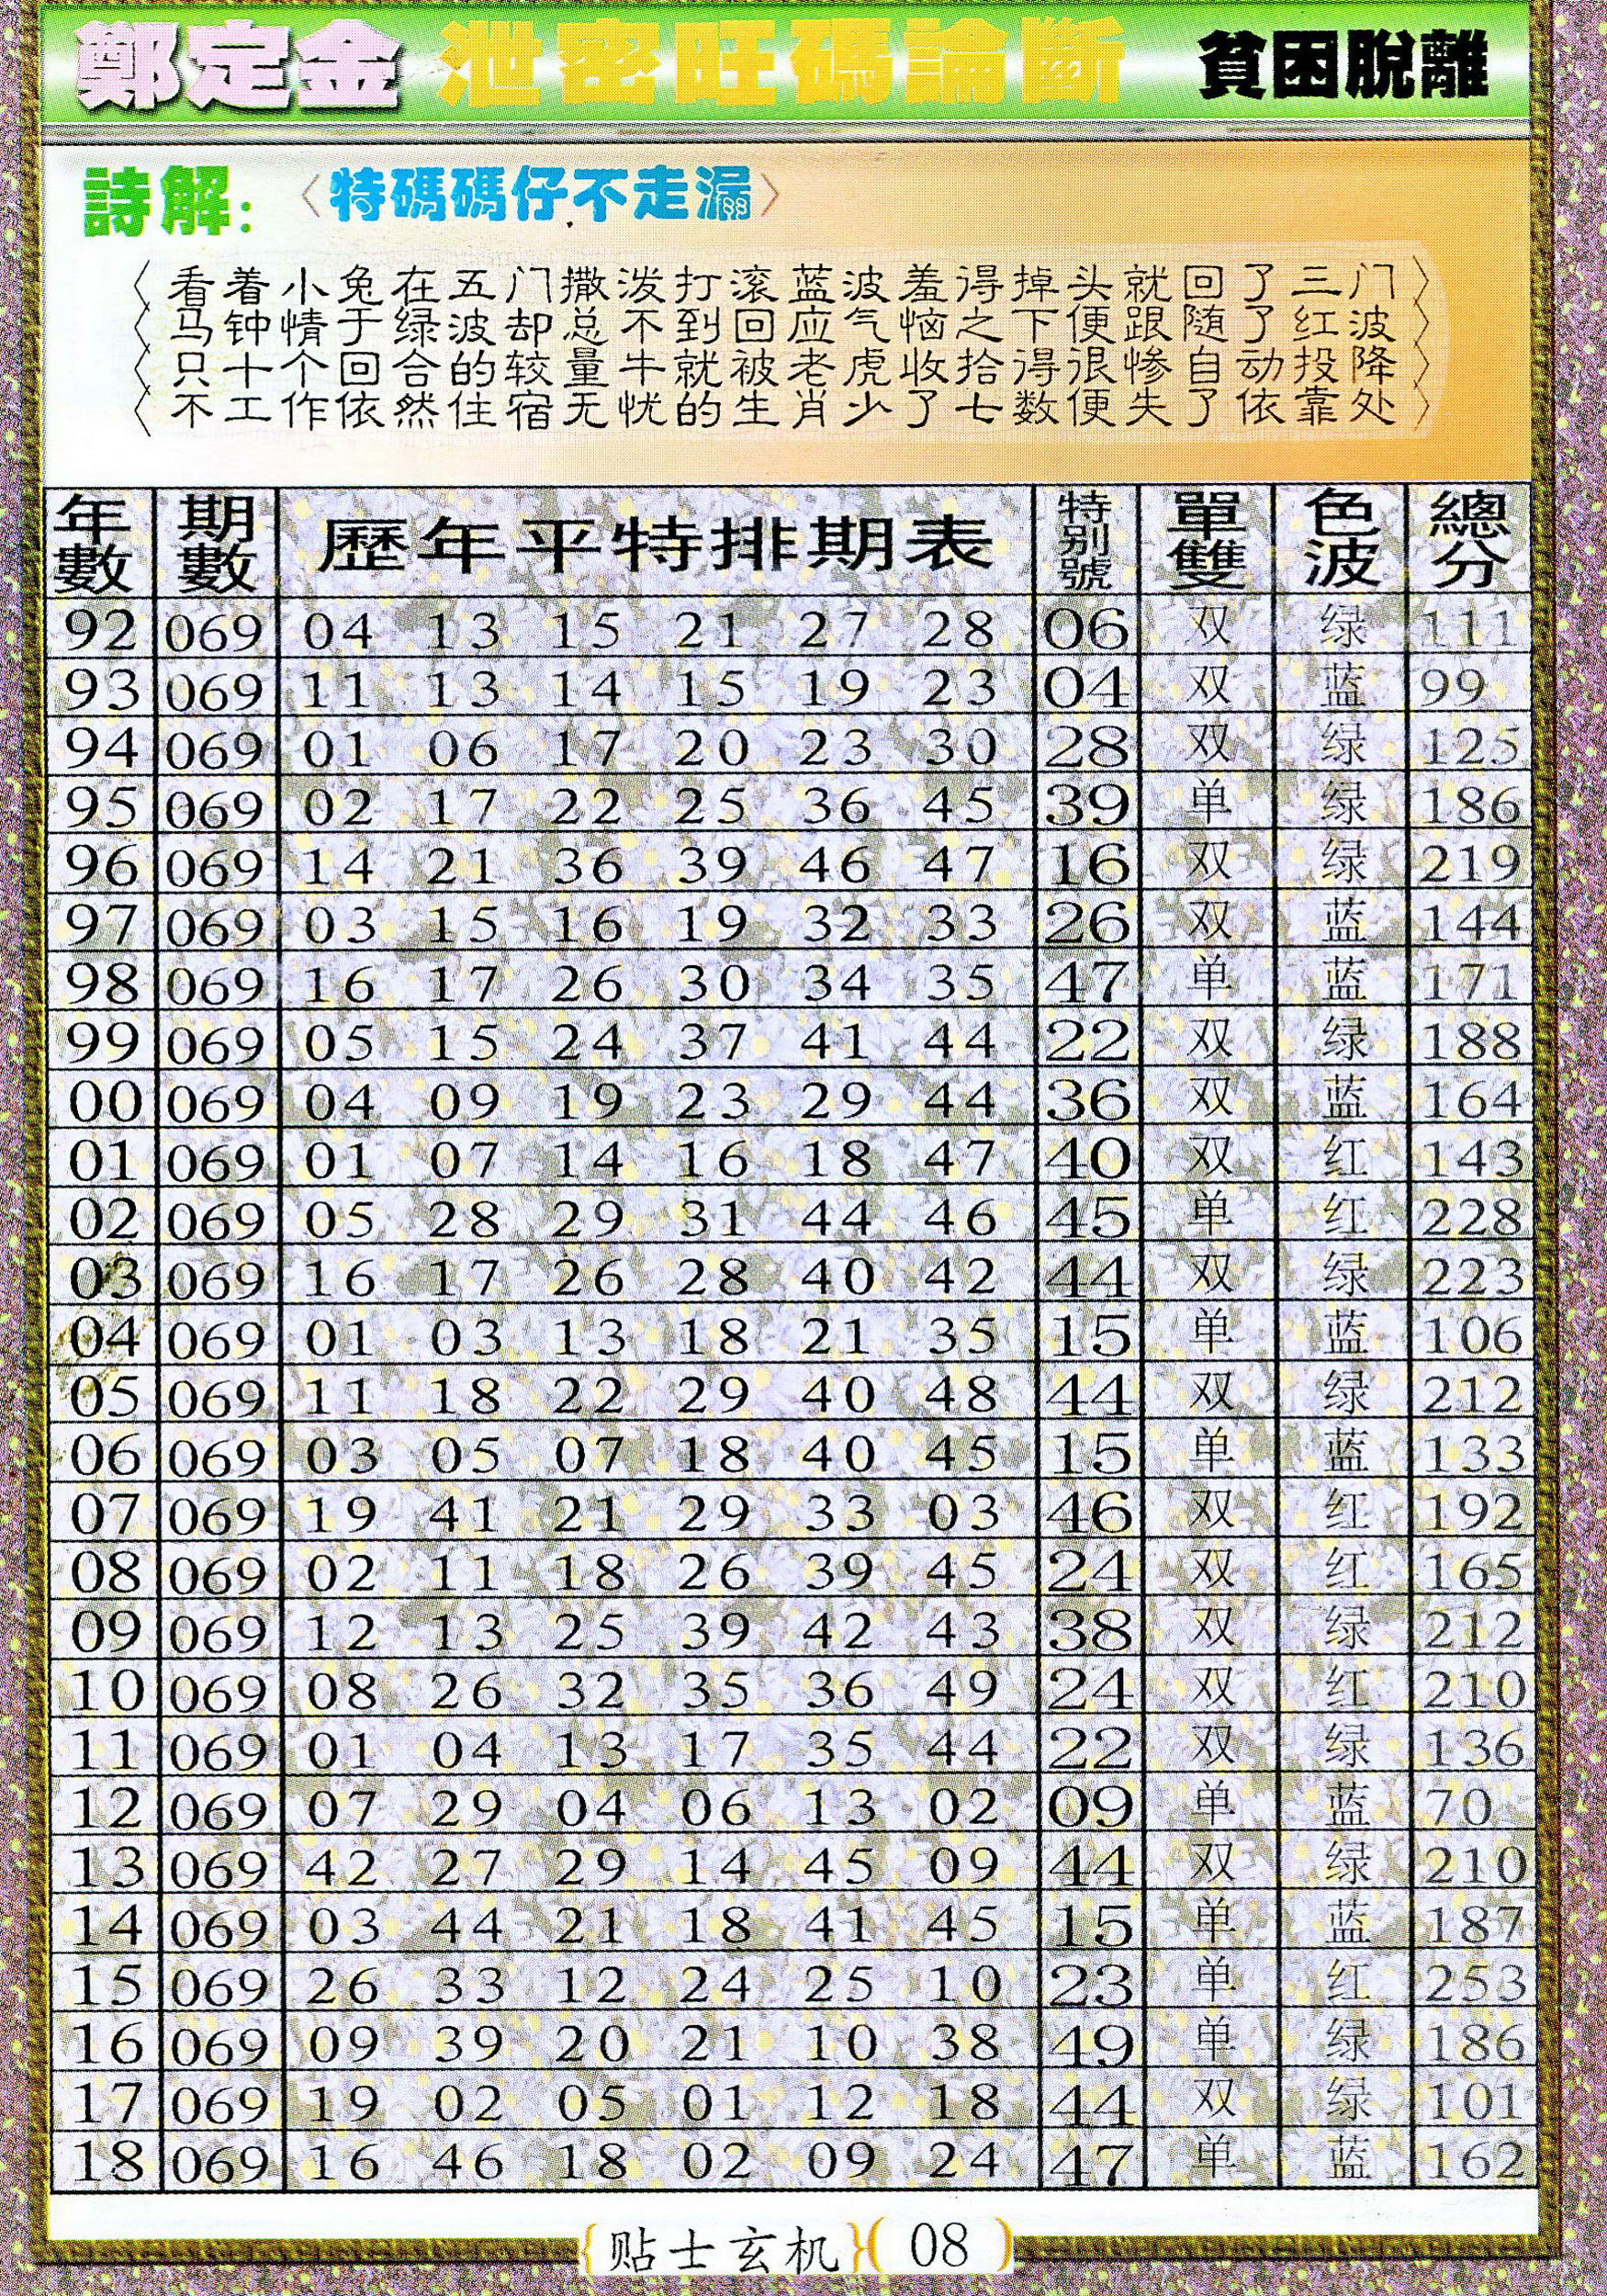 鄭定金 泄密旺碼論斷 貧困脫離
詩解: 〈特碼碼仔不走漏〉
〈看着小兔在五门撒泼打滚蓝波羞得掉头就回了三门〉
〈马钟情于绿波却总不到回应气恼之下便跟随了红波〉
〈只十个回合的较量牛就被老虎收拾得很惨自动投降〉
〈不工作依然住宿无忧的生肖少了七数便失了依靠处〉
年數 期數 歷年平特排期表 特别號 單雙 色波 總分
92 069 04 13 15 21 27 28 06 双 绿 111
93 069 11 13 14 15 19 23 04 双 蓝 99
94 069 01 06 17 20 23 30 28 双 绿 125
95 069 02 17 22 25 36 45 39 单 绿 186
96 069 14 21 36 39 46 47 16 双 绿 219
97 069 03 15 16 19 32 33 26 双 蓝 144
98 069 16 17 26 30 34 35 47 单 蓝 171
99 069 05 15 24 37 41 44 22 双 绿 188
00 069 04 09 19 23 29 44 36 双 蓝 164
01 069 01 07 14 16 18 47 40 双 红 143
02 069 05 28 29 31 44 46 45 单 红 228
03 069 16 17 26 28 40 42 44 双 绿 223
04 069 01 03 13 18 21 35 15 单 蓝 106
05 069 11 18 22 29 40 48 44 双 绿 212
06 069 03 05 07 18 40 45 15 单 蓝 133
07 069 19 41 21 29 33 03 46 双 红 192
08 069 02 11 18 26 39 45 24 双 红 165
09 069 12 13 25 39 42 43 38 双 绿 212
10 069 08 26 32 35 36 49 24 双 红 210
11 069 01 04 13 17 35 44 22 双 绿 136
12 069 07 29 04 06 13 02 09 单 蓝 70
13 069 42 27 29 14 45 09 44 双 绿 210
14 069 03 44 21 18 41 45 15 单 蓝 187
15 069 26 33 12 24 25 10 23 单 红 253
16 069 09 39 20 21 10 38 49 单 绿 186
17 069 19 02 05 01 12 18 44 双 绿 101
18 069 16 46 18 02 09 24 47 单 蓝 162
{贴士玄机}(08)